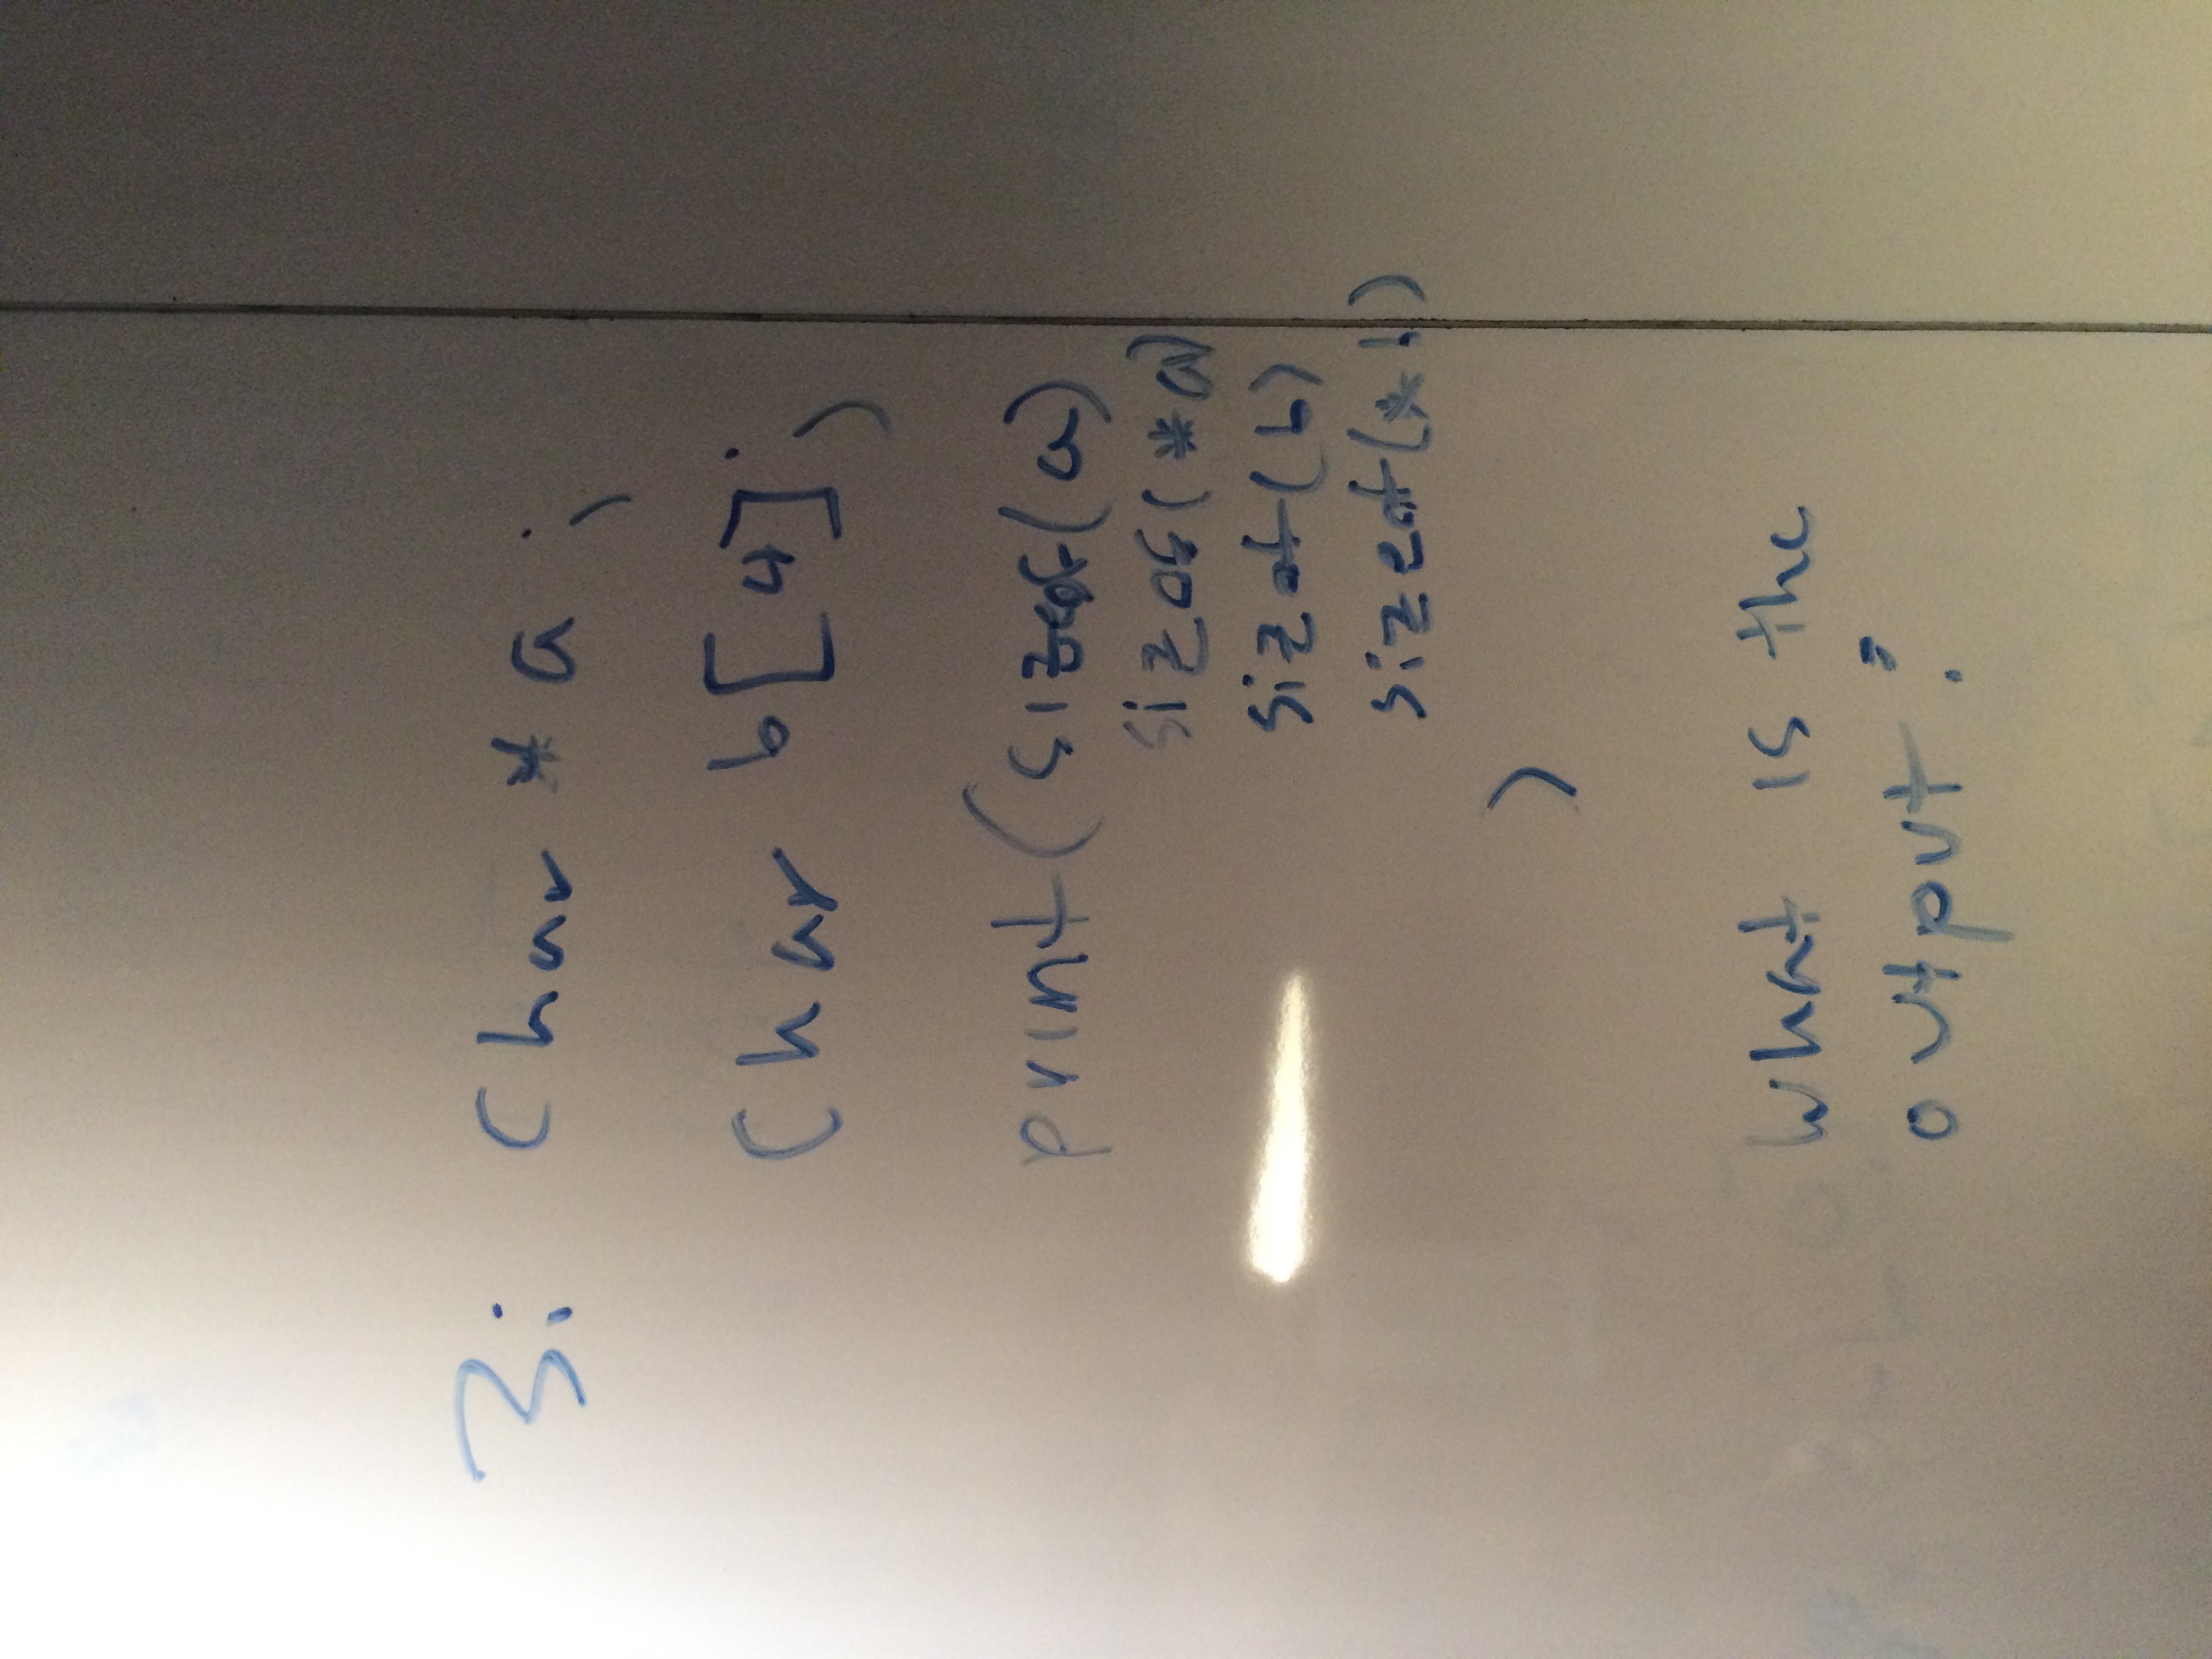 3: Char * a ;
Char b[4];
print(sizeof(a)
sizof(*a)
sizof(b)
sizeof(*b)
)
What is the
output?